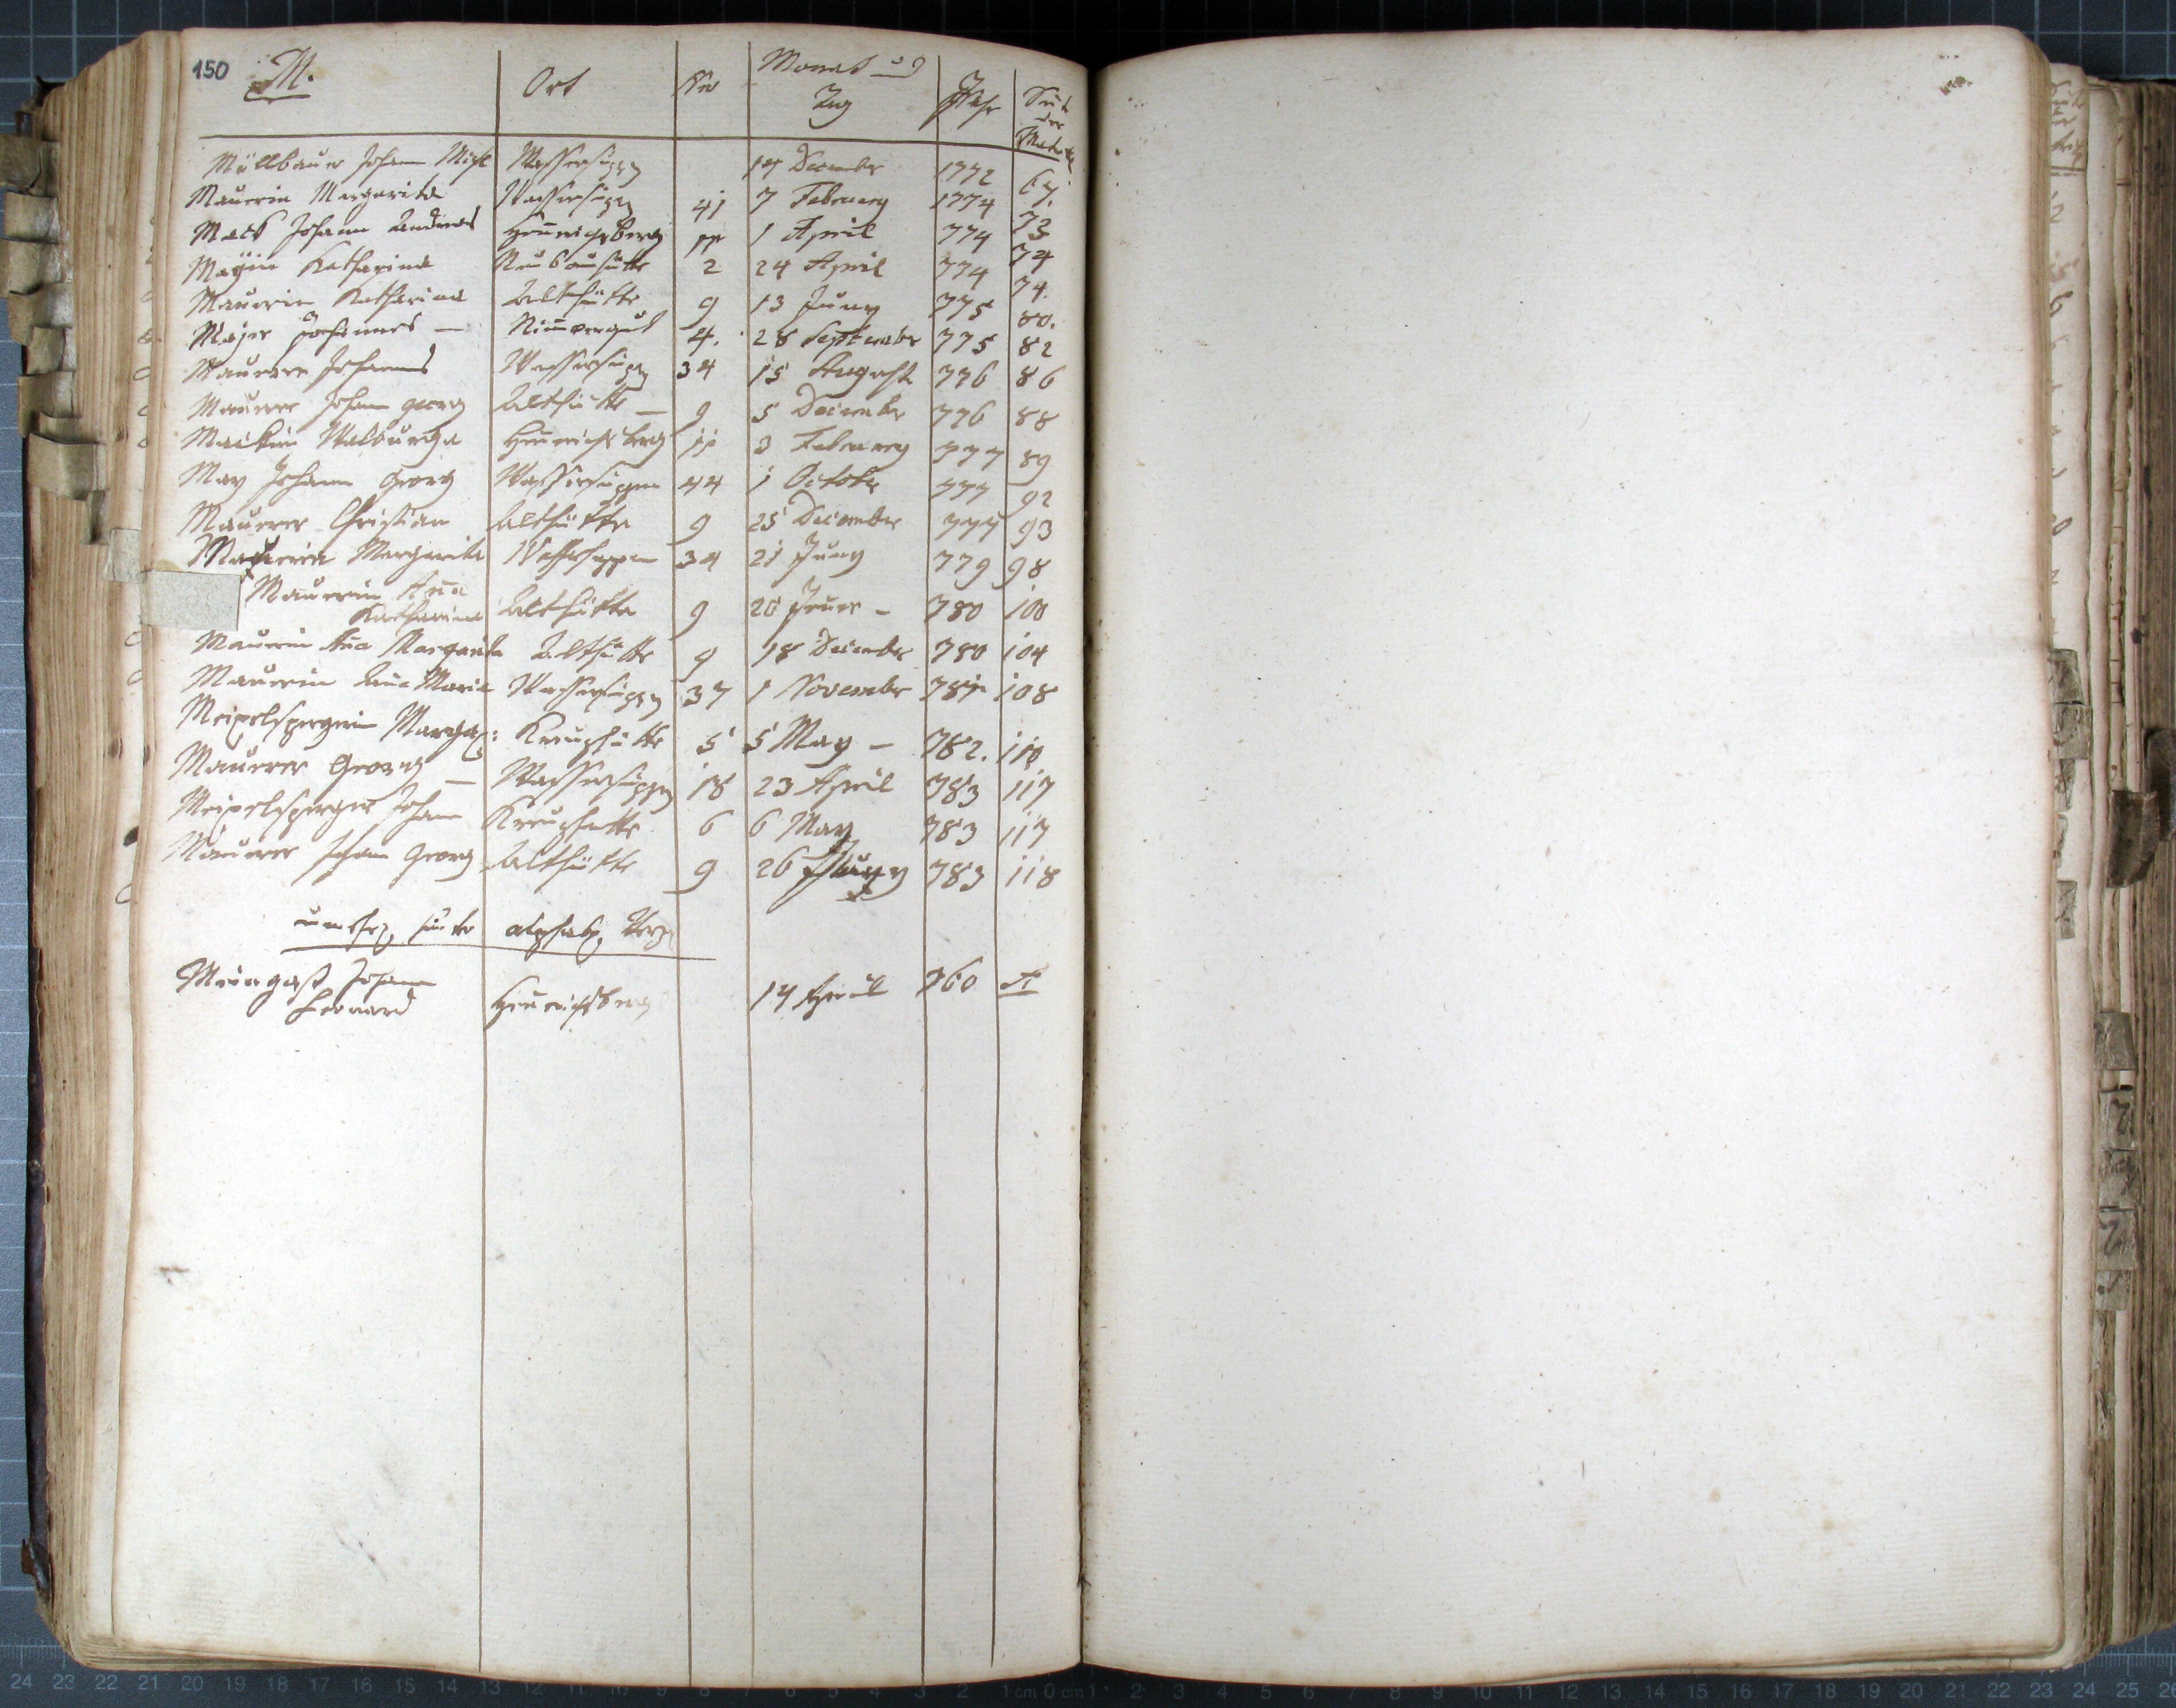 150 M. Ort Nro Monat u Tag Jahr Seite der Matrik
Müllbauer Johann Michl Wassersuppen 14 December 1772 67.
Mauerin Margarita Wassersuppen 41 7 February 1774 73
Mack Johann Andreas Heinrichsberg 11 1 April 774 74
Mayin Katharina Neubauhütte 2 24 April 774 74.
Maurin Katharina Althütte 9 13 Juny 775 80.
Majer Johannes — Nimvorgut 4. 28 September 775 82
Maurer Johannes Wassersuppen 34 15 August 776 86
Maurer Johann georg Althütte — 9 5 December 776 88
Mackin Walburga Heinrichsberg 11 3 February 777 89
May Johann Georg Wassersuppen 44 1 October 777 92
Maurer Christian Althütte 9 25 December 777 93
Mauerin Margarita Wassersuppen 34 21 Juny 779 98
Maurin Ana
Katharina Althütte 9 20 Jener – 780 100
Maurin Ana Margarita Althütte 9 18 December 780 104
Maurin Ana Maria Wassersuppen 37 1 November 781 108
Meixelspergerin Margar: Kreuzhütte 5 5 May – 782. 110
Maurer Georg — Wassersuppen 18 23 April 783 117
Meixelsperger Johann Kreuzhütte 6 6 May 783 117
Maurer Johann Georg Althütte 9 26 Juny 783 118
alphab. Verz.
Meingast Johann
Leonard Heinrichsberg 14 April 760